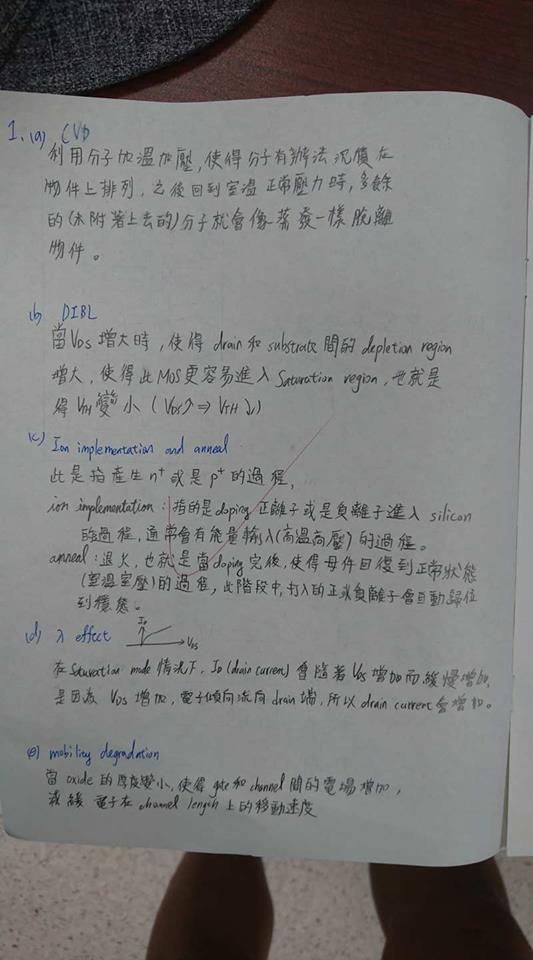 1. (a) CVD
利用分子加溫加壓，使得分子有辦法沉積在
物件上排列，之後回到室溫正常壓力時，多餘
的(未附著上去的)分子就會像蒸發一樣脫離
物件。
(b) DIBL
當VDS增大時，使得 drain 和 substrate 間的 depletion region
增大，使得此MOS更容易進入 Saturation region，也就是
得 VTH 變小 (VDS↑ ⇒ VTH↓)
(c) Ion implementation and anneal
此是指產生 n+ 或是 p+ 的過程，
ion implementation：指的是 doping 正離子或是負離子進入 silicon
的過程，通常會有能量輸入(高溫高壓)的過程。
anneal：退火，也就是當 doping 完後，使得母件回復到正常狀態
(室溫室壓)的過程，此階段中，打入的正或負離子會自動歸位
到穩態。
(d) λ effect ID VDS
在 Saturation mode 情況下，ID (drain current) 會隨著 VDS 增加而緩慢增加，
是因為 VDS 增加，電子傾向流向 drain 端，所以 drain current 會增加。
(e) mobility degradation
當 oxide 的厚度變小，使得 gate 和 channel 間的電場增加，
減緩電子在 channel length 上的移動速度